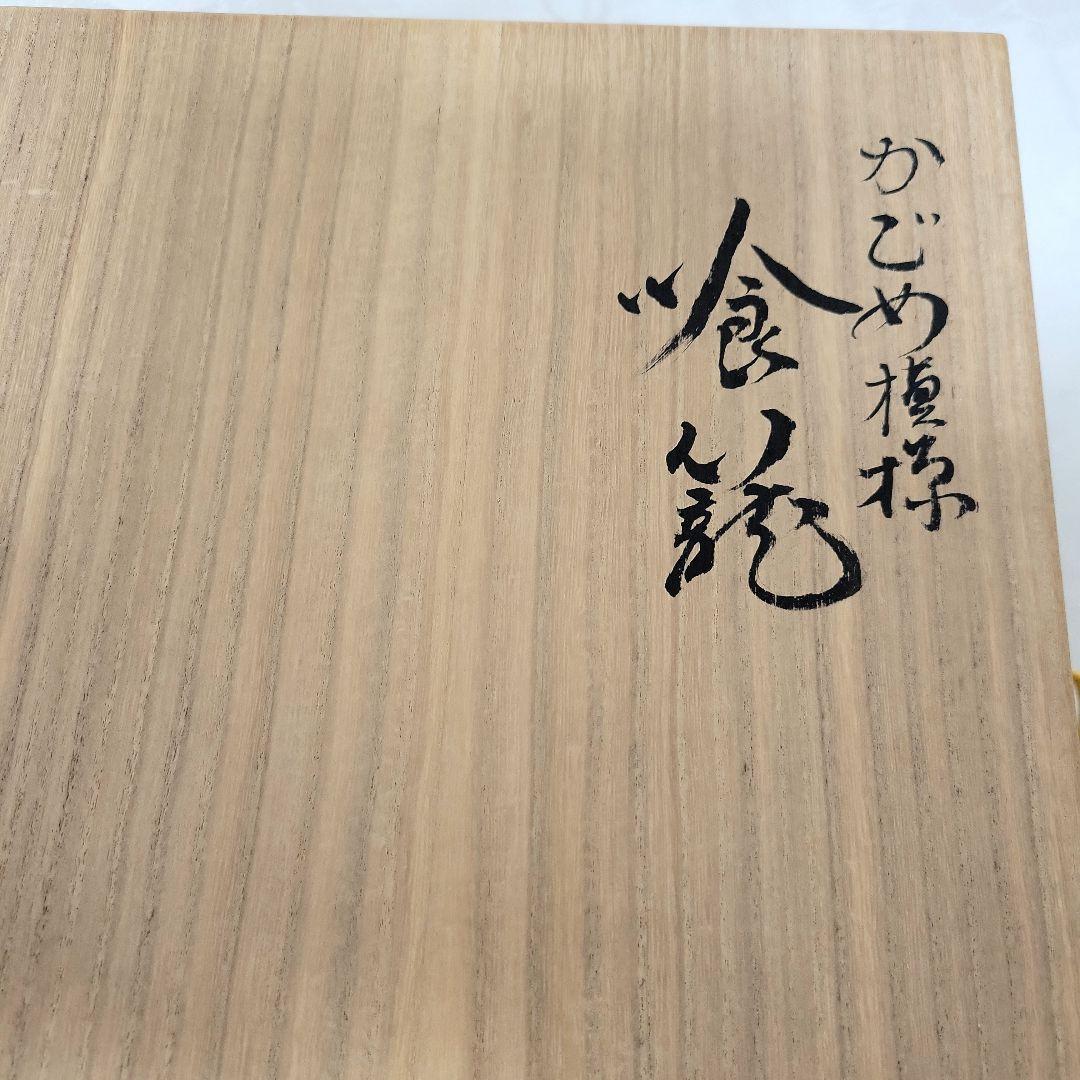 かごめ模様
喰籠